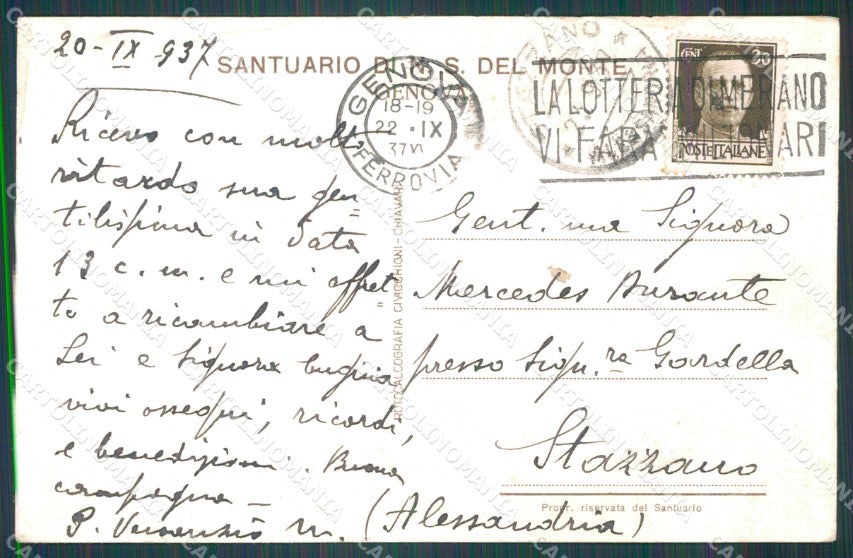 20-IX 937
SANTUARIO DI N. S. DEL MONTE
GENOVA
GENOVA
18-19
22 . IX
37 XV
FERROVIA
LA LOTTERIA DI MERANO
VI FARÀ
ARI
CENT
30
POSTE ITALIANE
Ricevo con molto
ritardo sua gen
tilissima in data
13 c. m. e mi affret
to a ricambiare a
Lei e Signora
vivi ossequi, ricordi,
e benedizioni. Buona
campagna —
P. Venanzio m.
Gent.ma Signora
Mercedes Durante
presso Sign.ra Gardella
Stazzano
(Alessandria)
Propr. riservata del Santuario
ROTOCALCOGRAFIA CIVICCHIONI - CHIAVARI
CARTOLINOMANIA